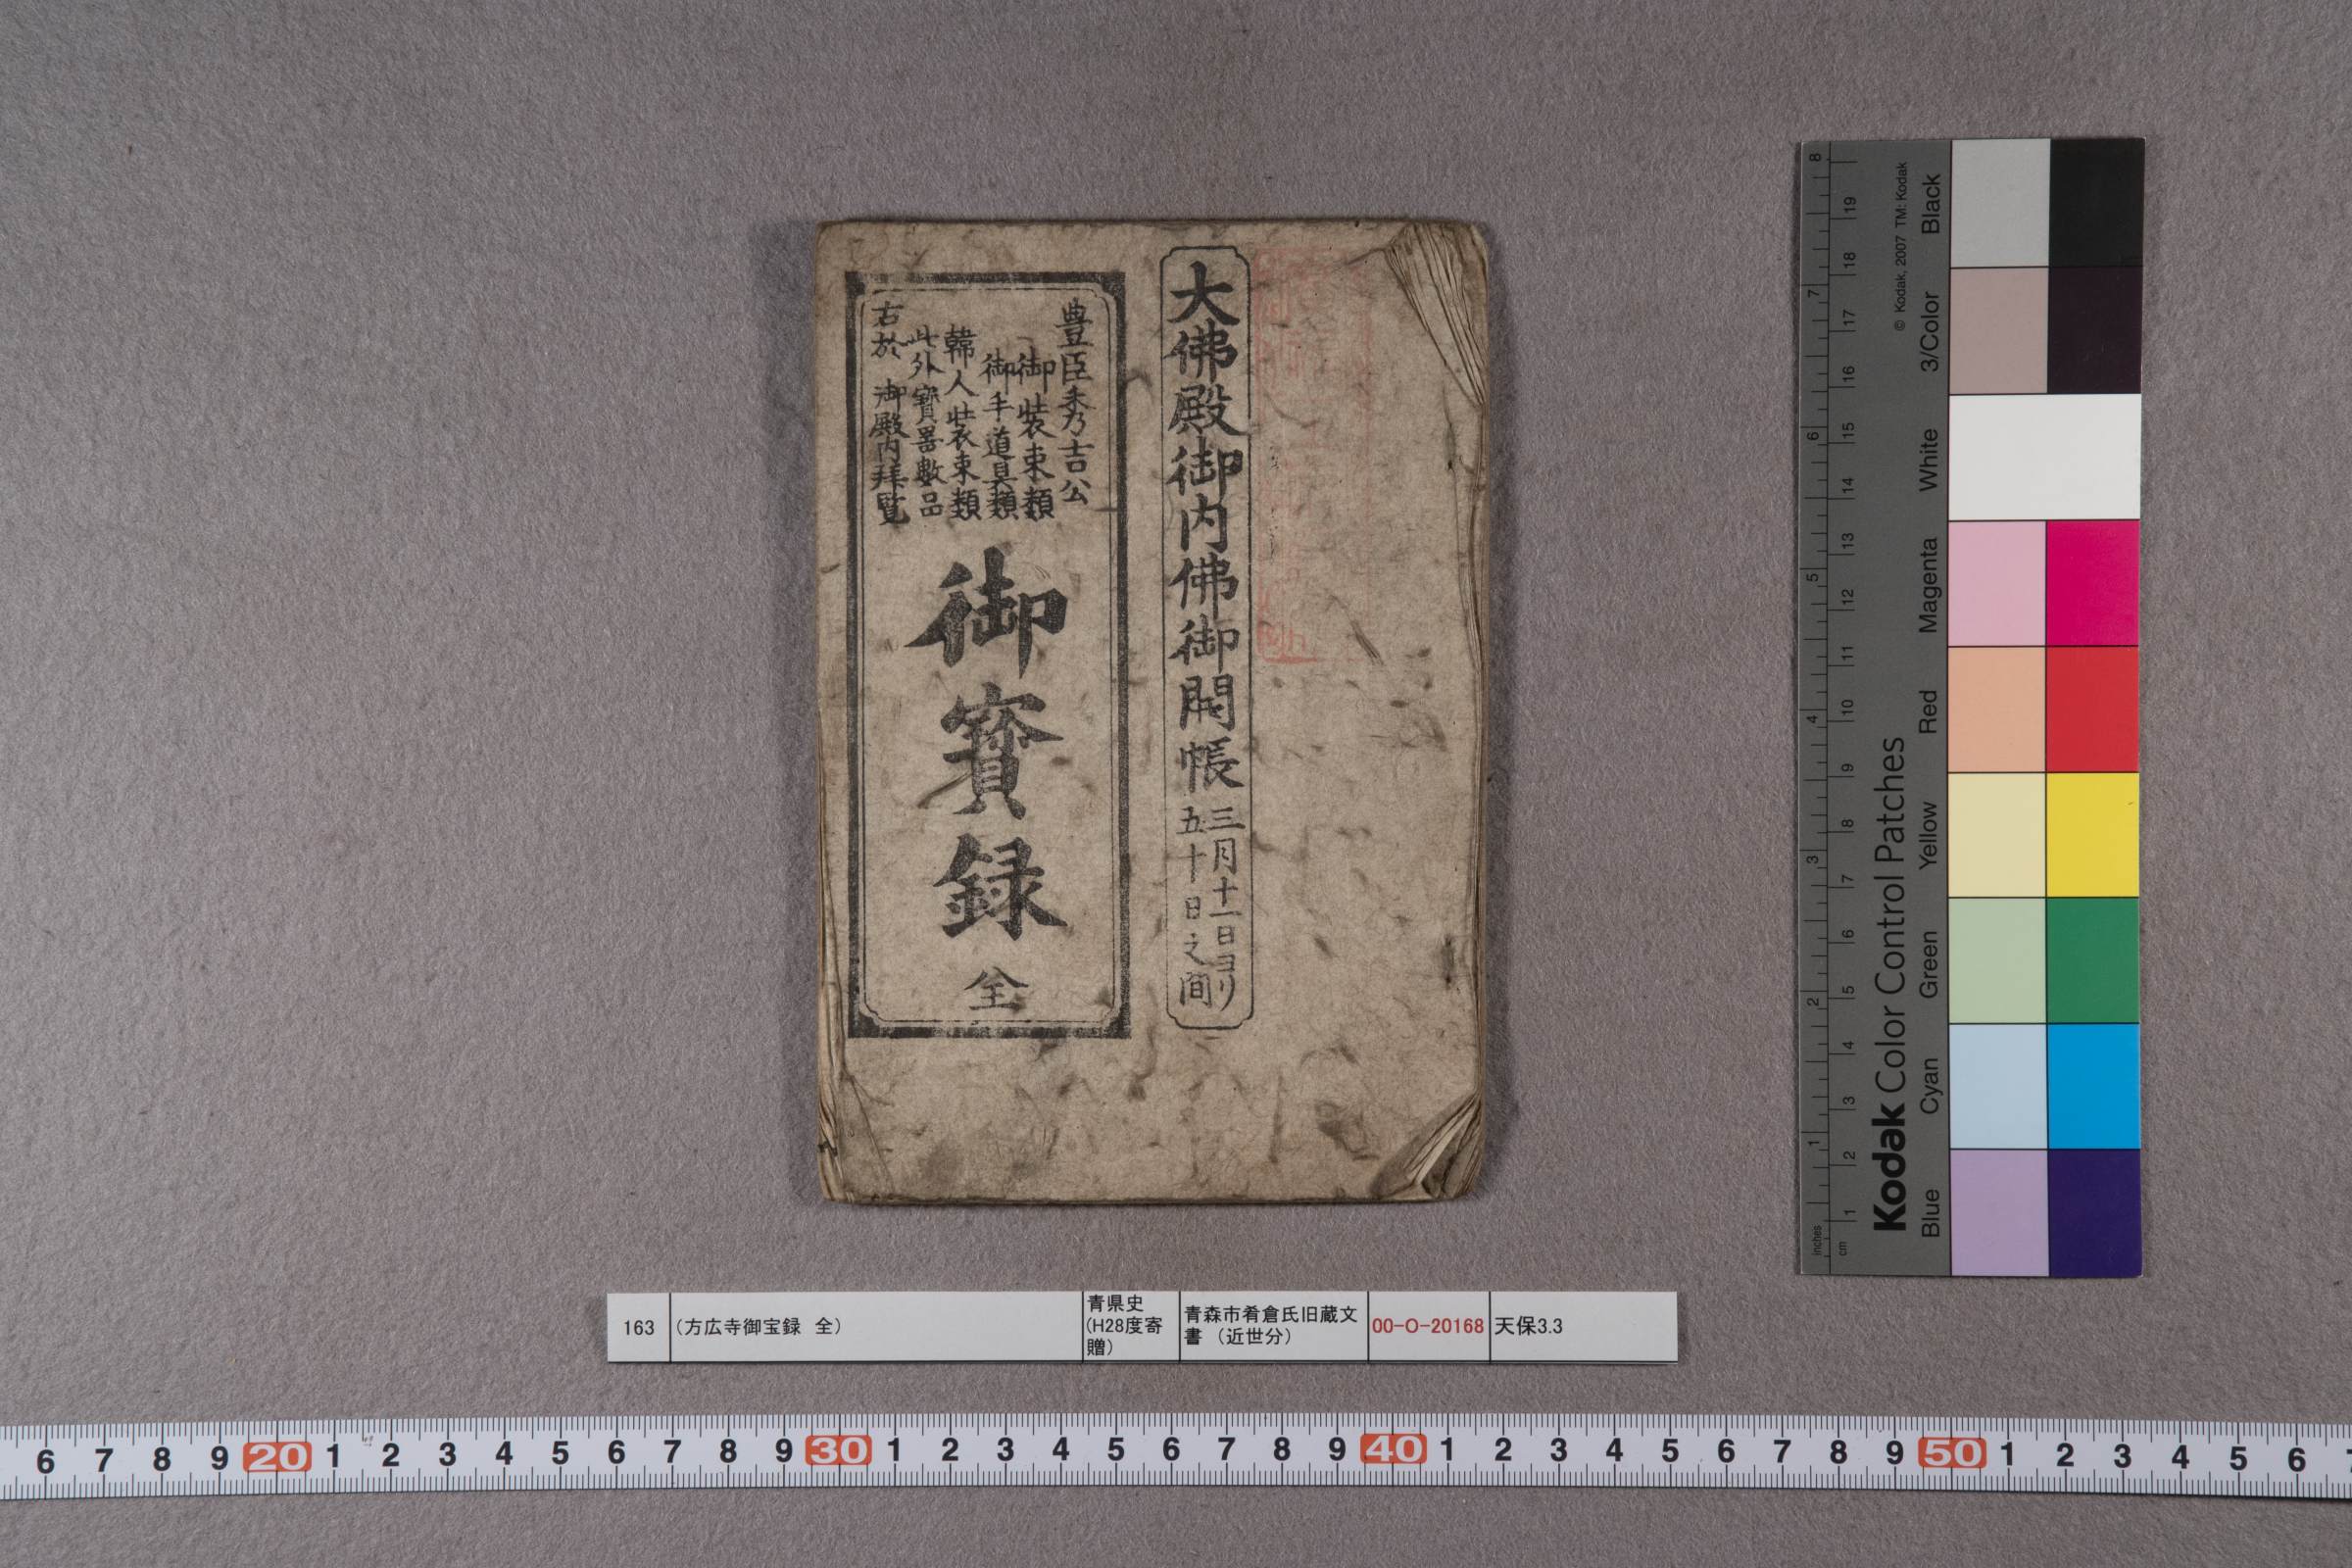 大佛殿御内佛御開帳
三月十一日ヨリ
五十日之間
豊臣秀吉公
御装束類
御手道具類
韓人装束類
此外寳器數品
右於 御殿内拜覧
御寳録 全
163
(方広寺御宝録 全)
青県史
(H28度寄
贈)
青森市肴倉氏旧蔵文
書 (近世分)
00-O-20168
天保3.3
Kodak Color Control Patches
© Kodak, 2007 TM: Kodak
Blue Cyan Green Yellow Red Magenta White 3/Color Black
inches 1 2 3 4 5 6 7 8
cm 1 2 3 4 5 6 7 8 9 10 11 12 13 14 15 16 17 18 19
6 7 8 9 20 1 2 3 4 5 6 7 8 9 30 1 2 3 4 5 6 7 8 9 40 1 2 3 4 5 6 7 8 9 50 1 2 3 4 5 6 7